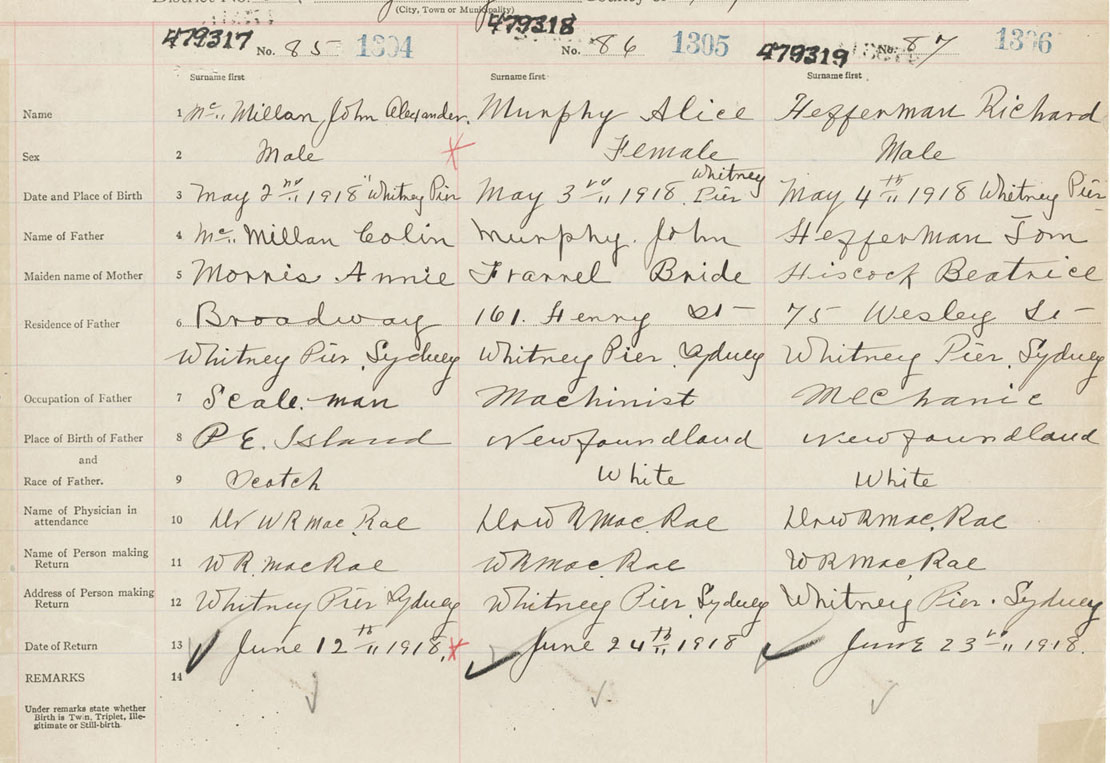 District No.
(City, Town or Municipality)
County of
479317 No. 85 1304
479318 No. 86 1305
479319 No. 87 1306
Surname first Surname first Surname first
Name 1 Mc.. Millan John Alexander. Murphy Alice Hefferman Richard
Sex 2 Male Female Male
Date and Place of Birth 3 May 2nd 1918 Whitney Pier May 3rd 1918 Whitney Pier May 4th 1918 Whitney Pier
Name of Father 4 Mc.. Millan Colin Murphy. John Hefferman Tom
Maiden name of Mother 5 Morris Annie Frarrel Bride Hiscock Beatrice
Residence of Father 6 Broadway 161. Henry St- 75 Wesley St-
Whitney Pier. Sydney Whitney Pier. Sydney Whitney Pier. Sydney
Occupation of Father 7 Scale. man Machinist Mechanic
Place of Birth of Father 8 P E. Island Newfoundland Newfoundland
and
Race of Father. 9 Scotch White White
Name of Physician in attendance 10 Dr W R Mac Rae Dr W R Mac Rae Dr W R Mac. Rae
Name of Person making Return 11 W R. Mac Rae W R Mac. Rae W R Mac. Rae
Address of Person making Return 12 Whitney Pier Sydney Whitney Pier. Sydney Whitney Pier. Sydney
Date of Return 13 June 12th 1918. June 24th 1918 June 23rd 1918.
REMARKS 14
Under remarks state whether
Birth is Twin, Triplet, Ille-
gitimate or Still-birth.